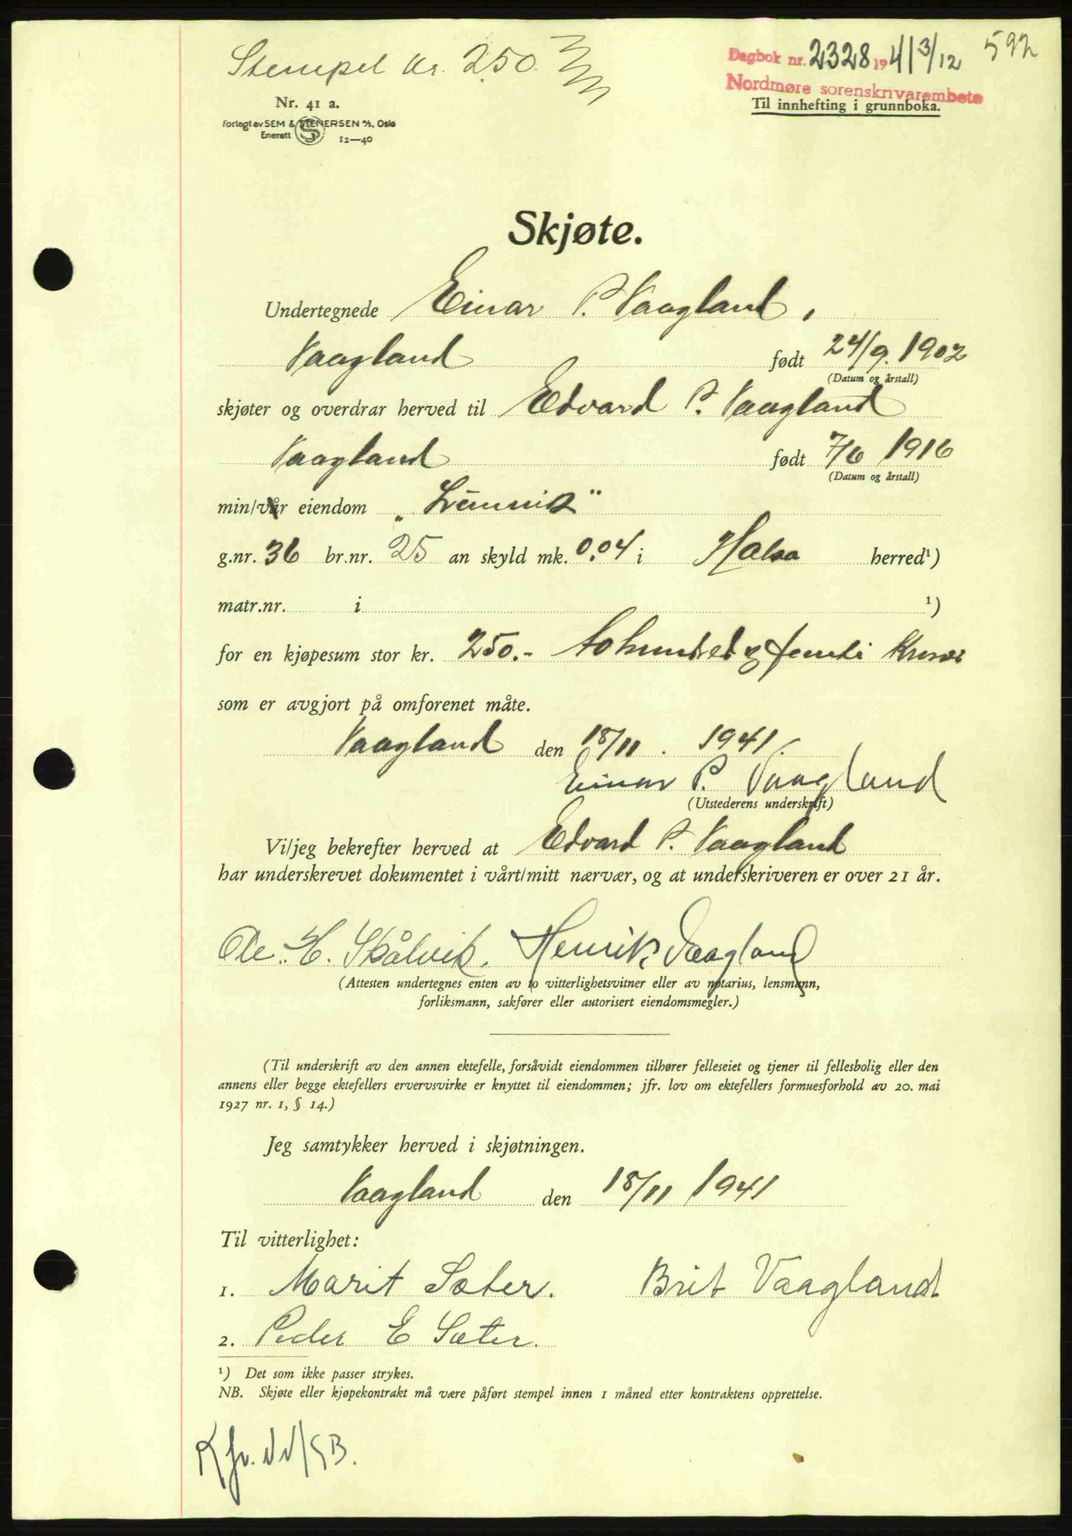 Stempel kr. 2.50.
Dagbok nr. 2328 1941 3/12
592
Nordmøre sorenskrivarembete
Til innhefting i grunnboka.
Nr. 41 a.
Forlagt av SEM & STENERSEN A/S, Oslo
Enerett S 12—40
Skjøte.
Undertegnede Einar P. Vaagland,
Vaagland født 24/9. 1902
(Datum og årstall)
skjøter og overdrar herved til Edvard P. Vaagland
Vaagland født 7/6 1916
(Datum og årstall)
min/vår eiendom
g.nr. 36 br.nr. 25 an skyld mk. 0.04 i Halsa herred¹)
matr.nr. i ¹)
for en kjøpesum stor kr. 250.- tohundred og femti Kroner
som er avgjort på omforenet måte.
Vaagland den 18/11. 1941
Einar P. Vaagland
(Utstederens underskrift)
Vi/jeg bekrefter herved at Edvard P. Vaagland
har underskrevet dokumentet i vårt/mitt nærvær, og at underskriveren er over 21 år.
Ole. H. Skålvik. Henrik Vaagland
(Attesten undertegnes enten av to vitterlighetsvitner eller av notarius, lensmann,
forliksmann, sakfører eller autorisert eiendomsmegler.)
(Til underskrift av den annen ektefelle, forsåvidt eiendommen tilhører felleseiet og tjener til fellesbolig eller den
annens eller begge ektefellers ervervsvirke er knyttet til eiendommen; jfr. lov om ektefellers formuesforhold av 20. mai
1927 nr. 1, § 14.)
Jeg samtykker herved i skjøtningen.
Vaagland den 18/11 1941
Til vitterlighet:
1. Marit Sæter. Brit Vaagland
2. Peder E Sæter.
¹) Det som ikke passer strykes.
NB. Skjøte eller kjøpekontrakt må være påført stempel innen 1 måned etter kontraktens opprettelse.